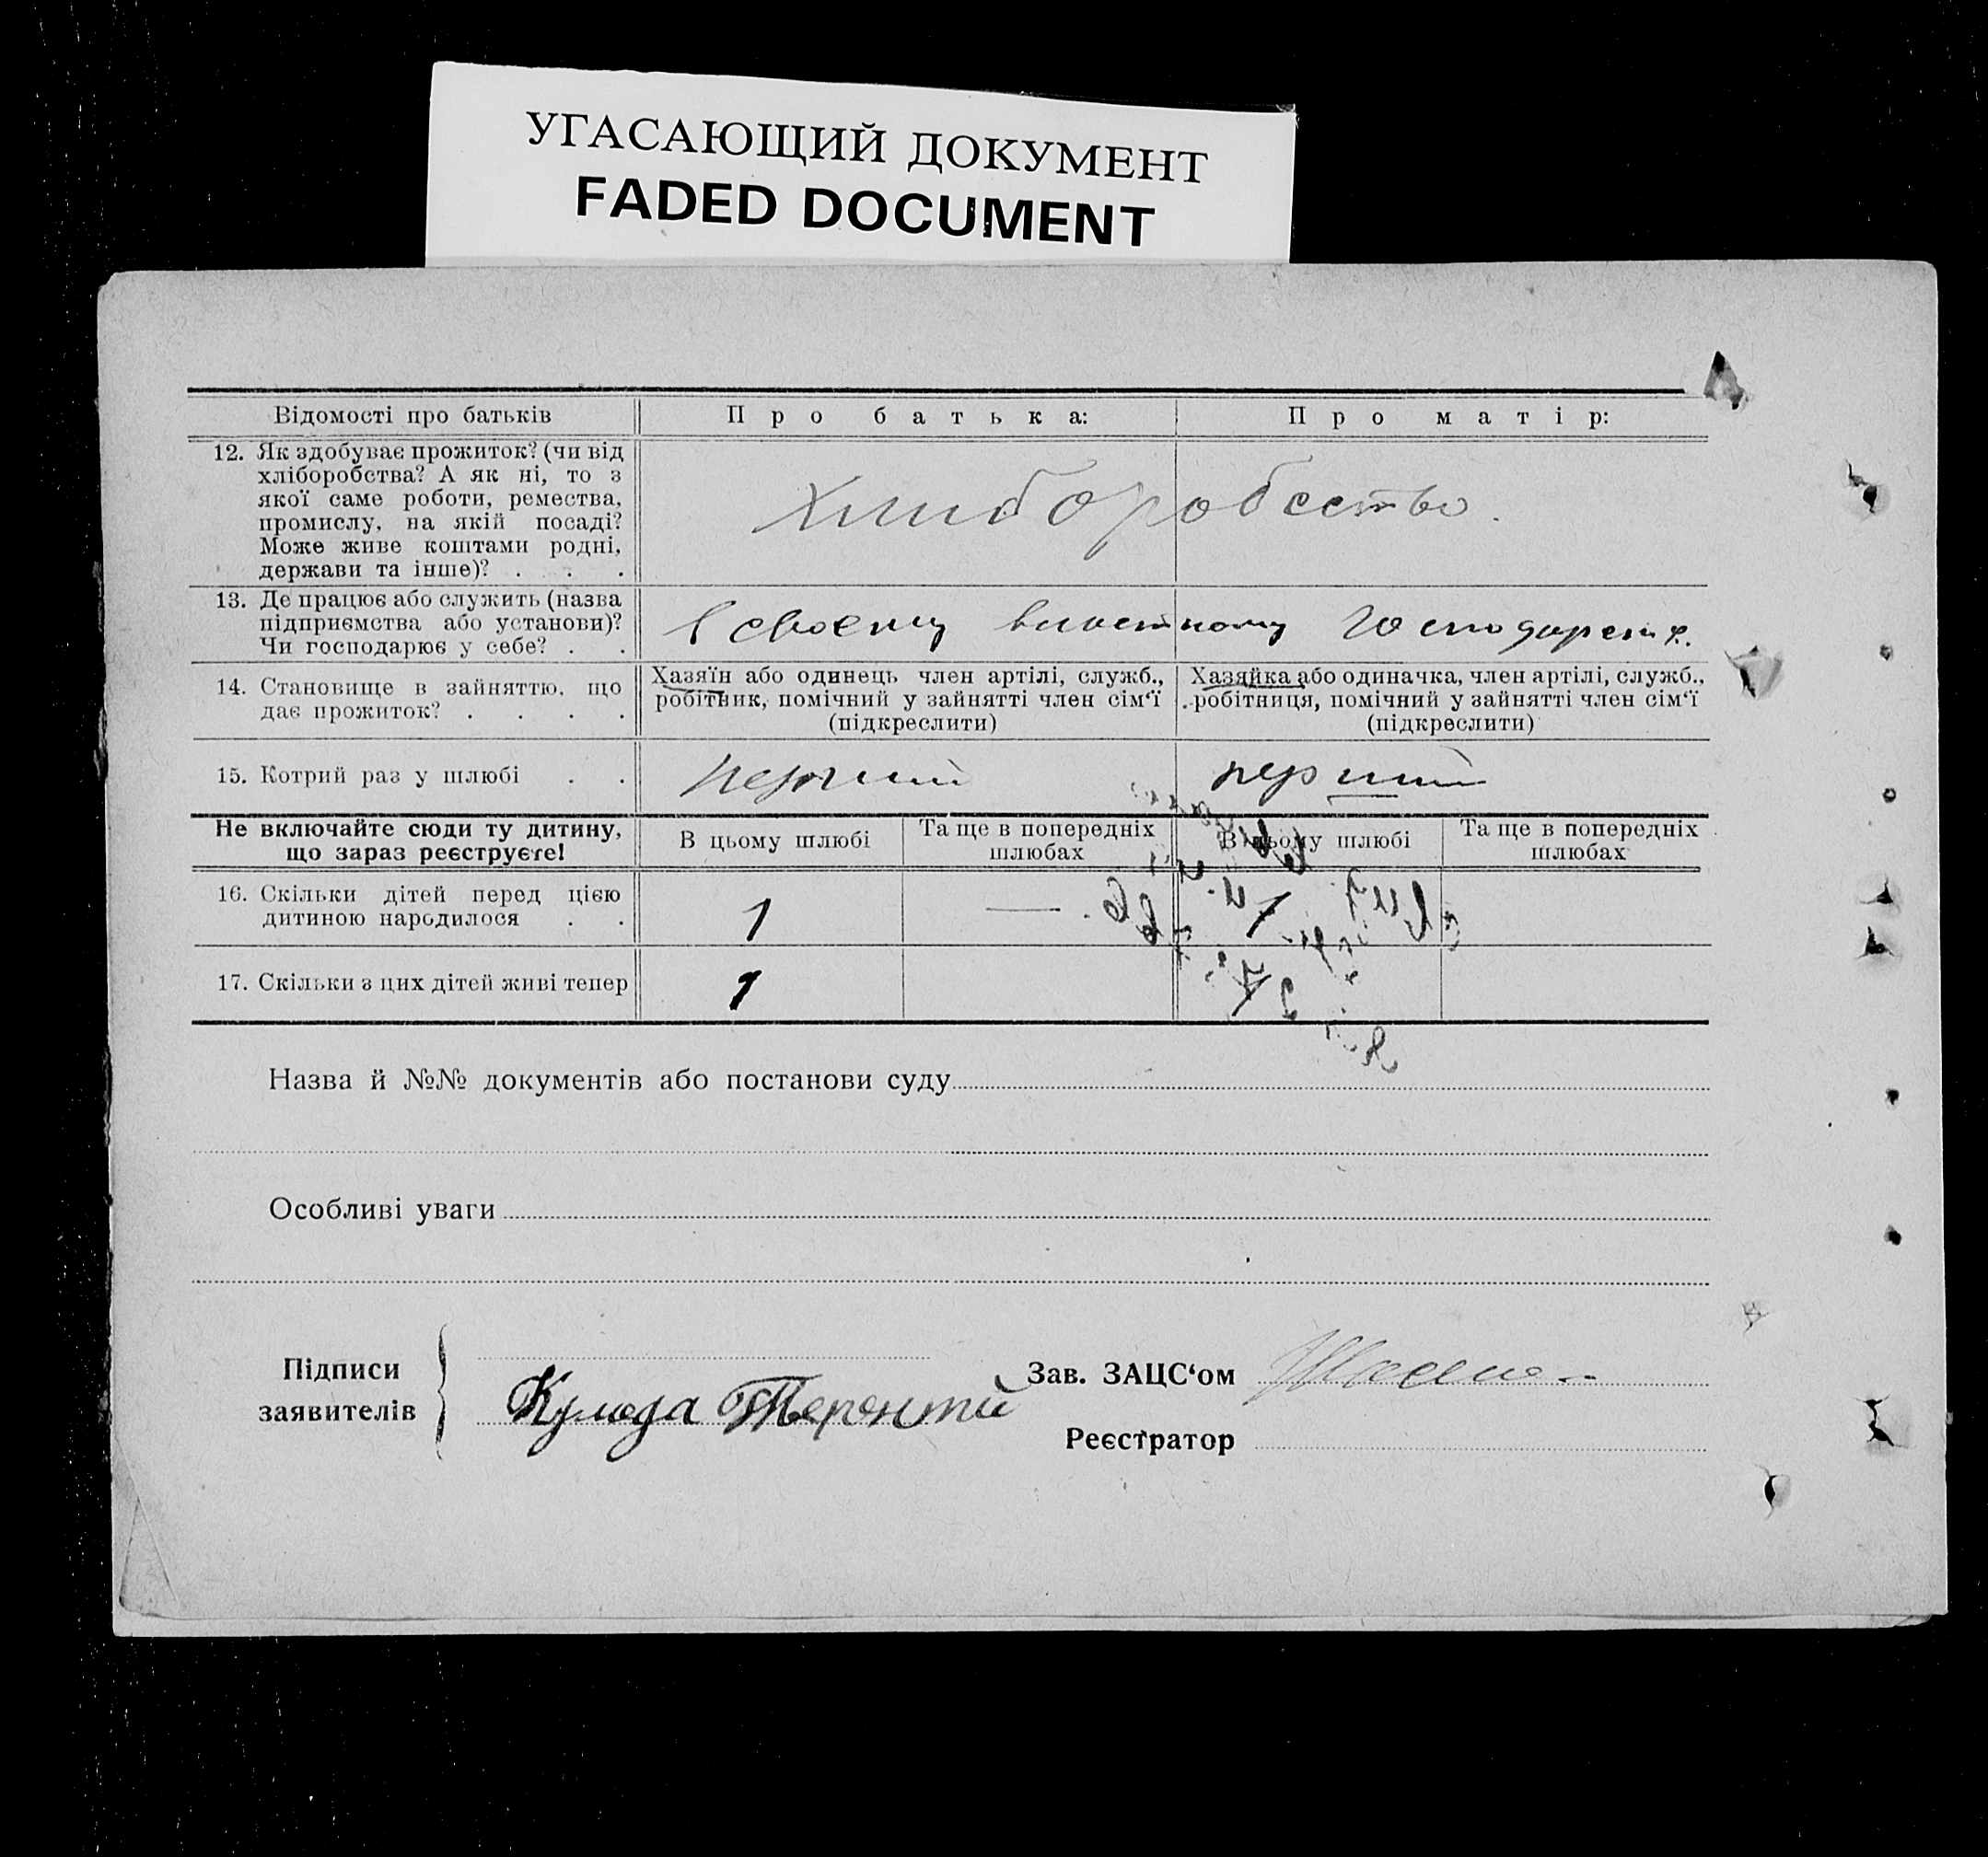 УГАСАЮЩИЙ ДОКУМЕНТ
FADED DOCUMENT
Відомості про батьків
Про батька:
Про матір:
12. Як здобуває прожиток? (чи від
хліборобства? А як ні, то з
якої саме роботи, ремества,
промислу, на якій посаді?
Може живе коштами родні,
держави та інше)? . . .
13. Де працює або служить (назва
підприємства або установи)?
Чи господарює у себе? . .
В своему
14. Становище в зайняттю, що
дає прожиток? . . . .
Хазяїн або одинець член артілі, служб.,
робітник, помічний у зайнятті член сім‘ї
(підкреслити)
Хазяйка або одиначка, член артілі, служб.,
робітниця, помічний у зайнятті член сім‘ї
(підкреслити)
15. Котрий раз у шлюбі . .
перший
перший
Не включайте сюди ту дитину,
що зараз реєструєте!
В цьому шлюбі
Та ще в попередніх
шлюбах
В цьому шлюбі
Та ще в попередніх
шлюбах
16. Скільки дітей перед цією
дитиною народилося . .
1
—
1
17. Скільки з цих дітей живі тепер
1
1
Назва й №№ документів або постанови суду
Особливі уваги
Підписи
заявителів
Терентий
Зав. ЗАЦС‘ом
Реєстратор